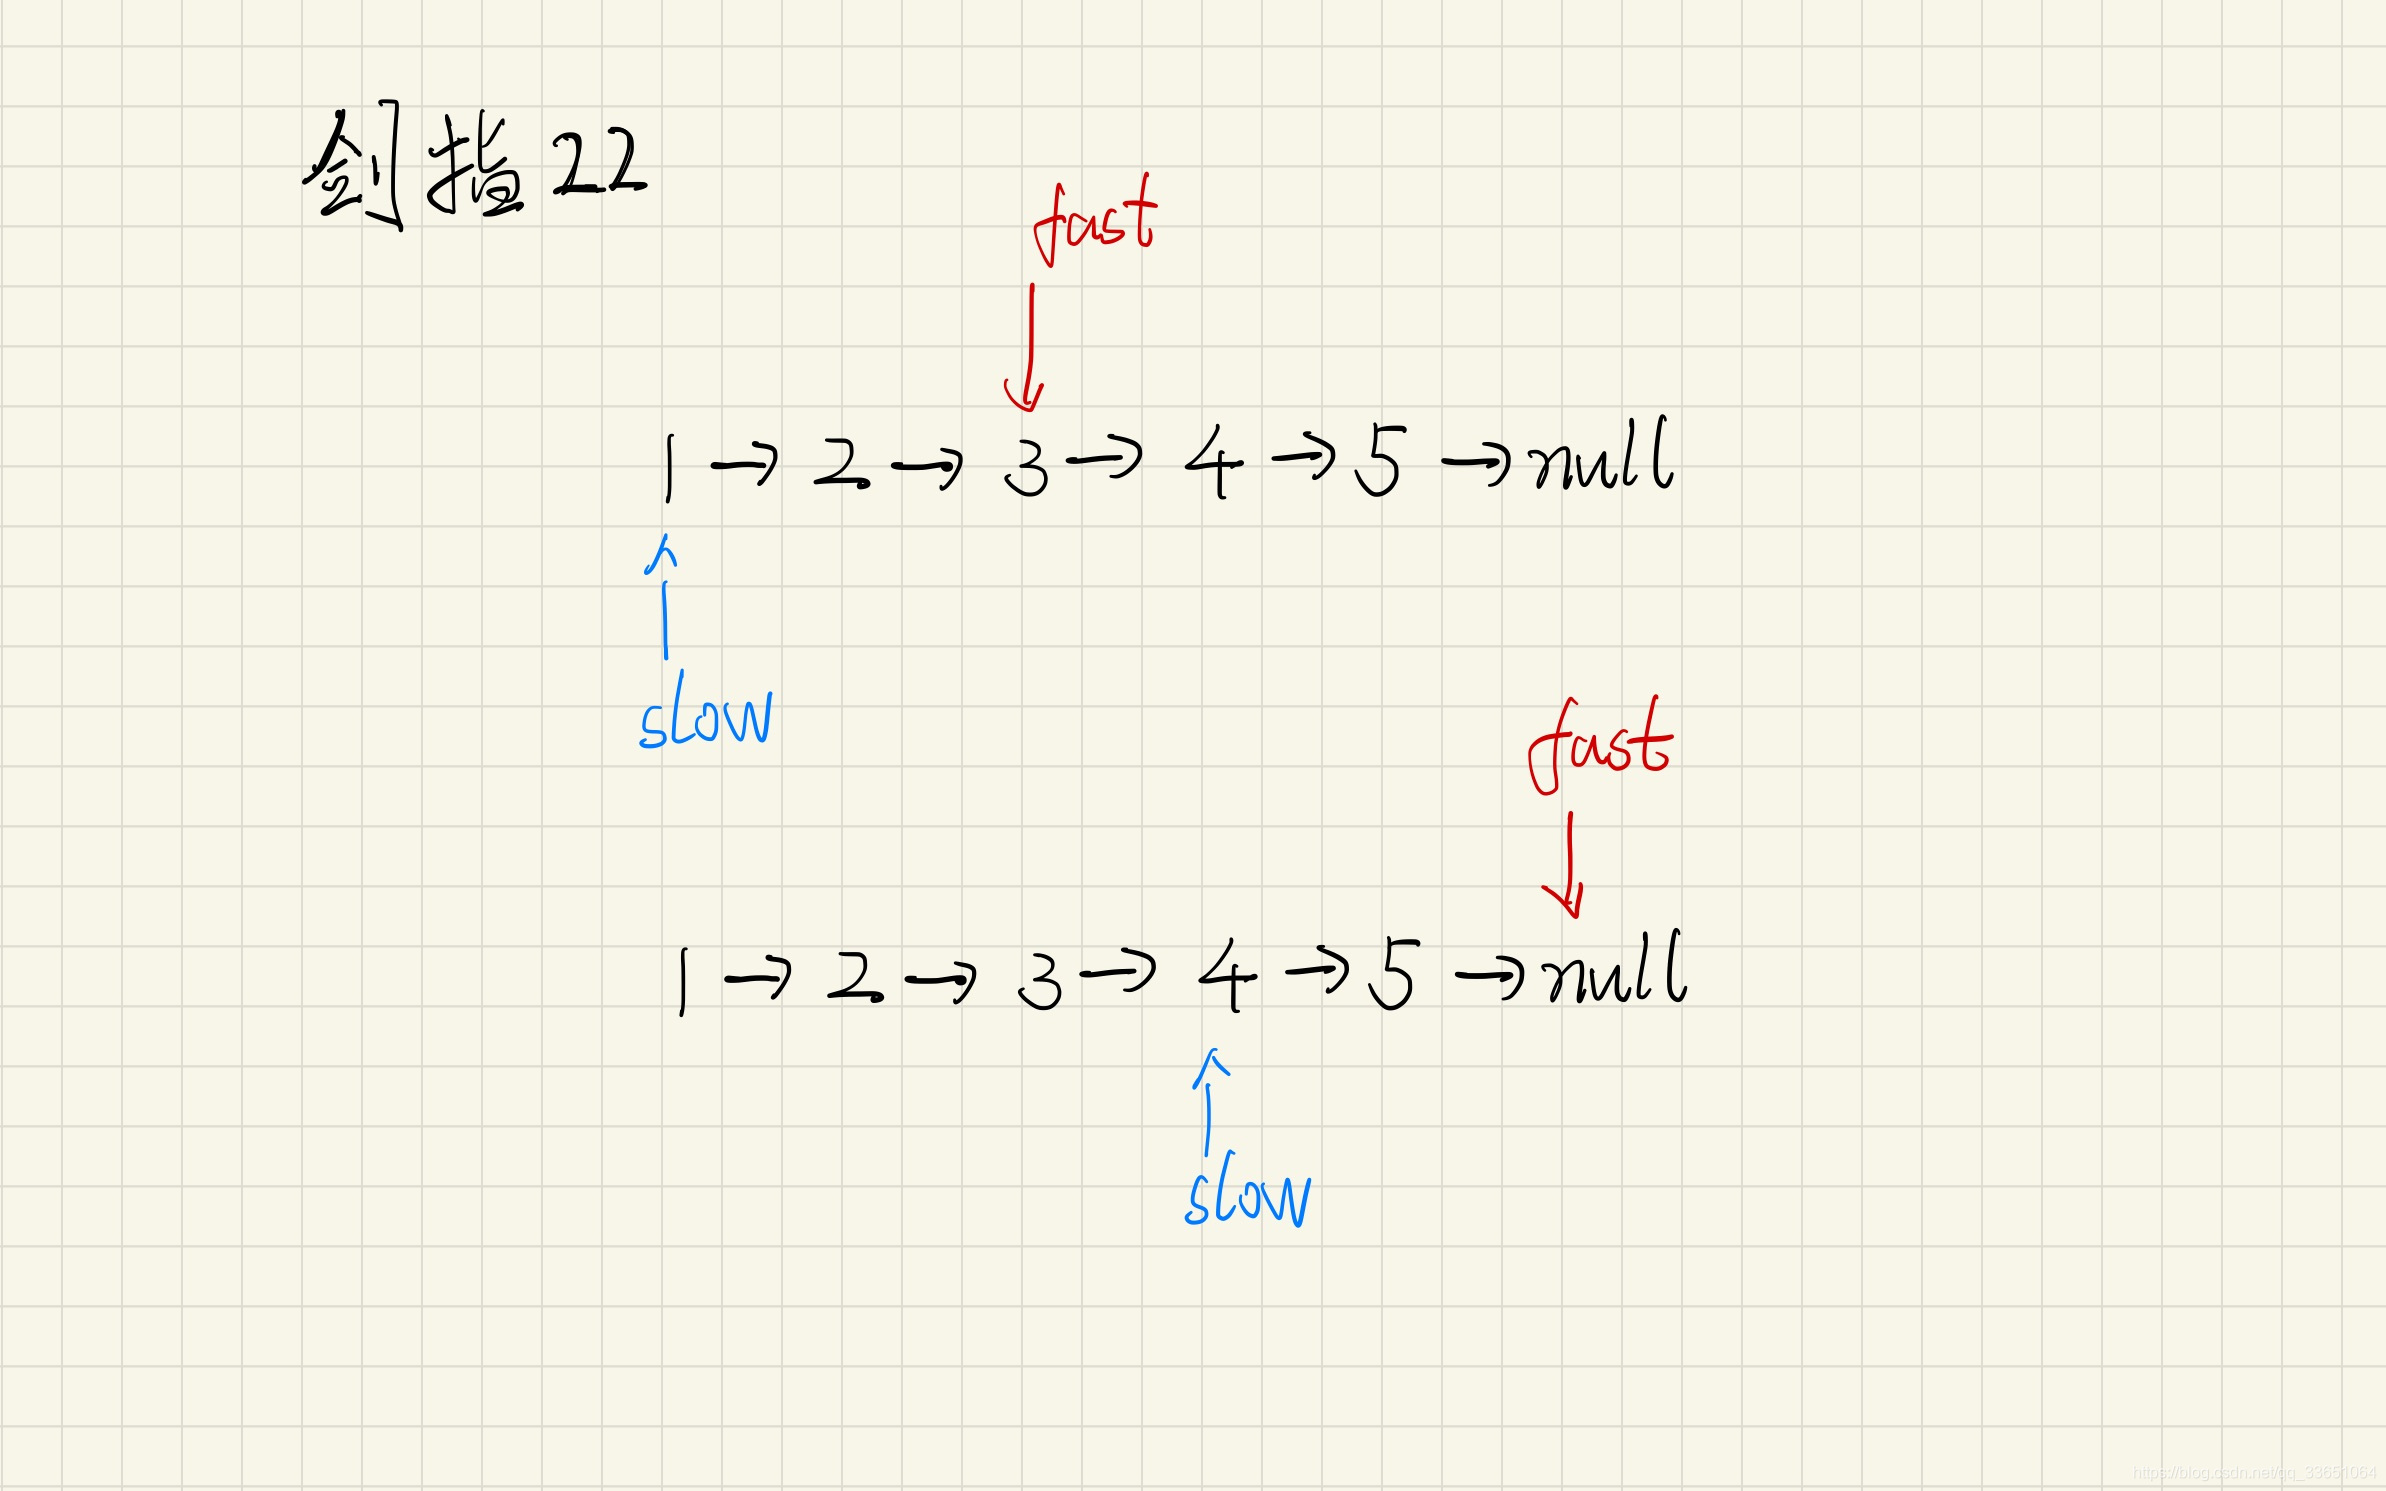 剑指22
fast
1→2→3→4→5→null
slow
fast
1→2→3→4→5→null
slow
https://blog.csdn.net/qq_33651064